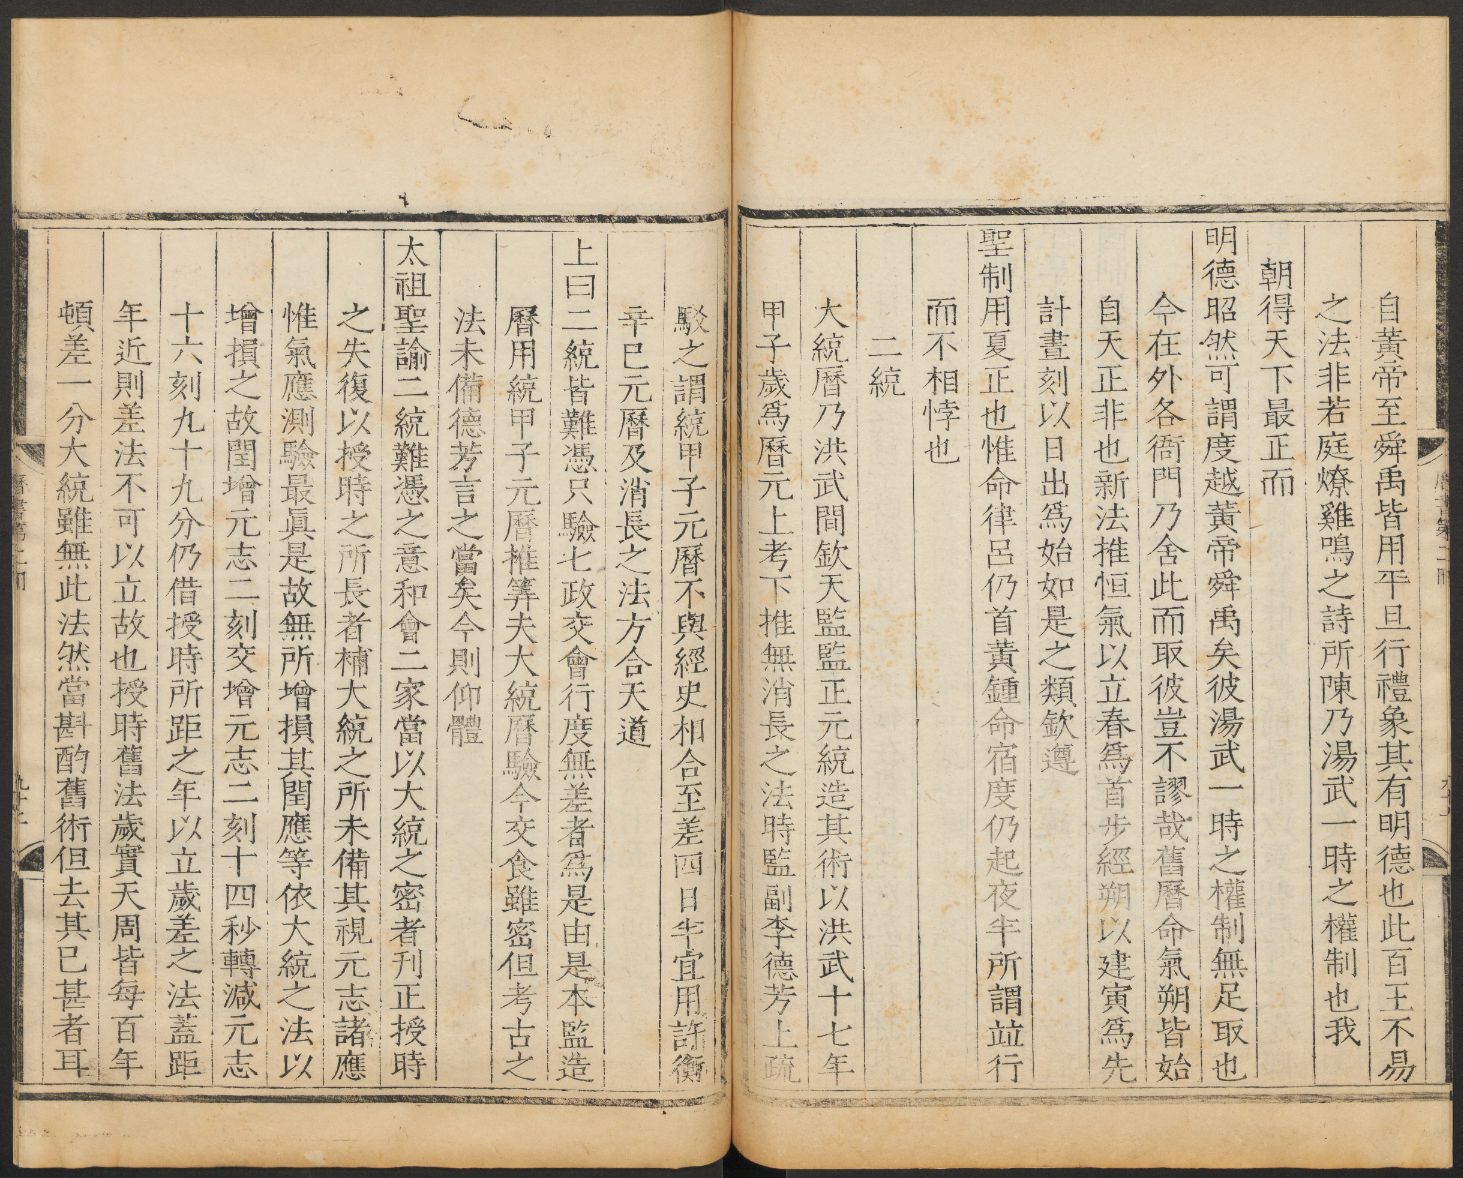 自黃帝至舜禹皆用平旦行禮象其有明德也此百王不易
之法非若庭燎雞鳴之詩所陳乃湯武一時之權制也我
朝得天下最正而
明德昭然可謂度越黃帝舜禹矣彼湯武一時之權制無足取也
今在外各衙門乃舍此而取彼豈不謬哉舊曆命氣朔皆始
自天正非也新法推恒氣以立春為首步經朔以建寅為先
計晝刻以日出為始如是之類欽遵
聖制用夏正也惟命律呂仍首黃鍾命宿度仍起夜半所謂竝行
而不相悖也
二統
大統曆乃洪武間欽天監監正元統造其術以洪武十七年
甲子歲為曆元上考下推無消長之法時監副李德芳上疏
駁之謂統甲子元曆不與經史相合至差四日半宜用許衡
辛巳元曆及消長之法方合天道
上曰二統皆難憑只驗七政交會行度無差者為是由是本監造
曆用統甲子元曆推筭夫大統曆驗今交食雖密但考古之
法未備德芳言之當矣今則仰體
太祖聖諭二統難憑之意和會二家當以大統之密者刊正授時
之失復以授時之所長者補大統之所未備其視元志諸應
惟氣應測驗最眞是故無所增損其閏應等依大統之法以
增損之故閏增元志二刻交增元志二刻十四秒轉減元志
十六刻九十九分仍借授時所距之年以立歲差之法蓋距
年近則差法不可以立故也授時舊法歲實天周皆每百年
頓差一分大統雖無此法然當斟酌舊術但去其已甚者耳